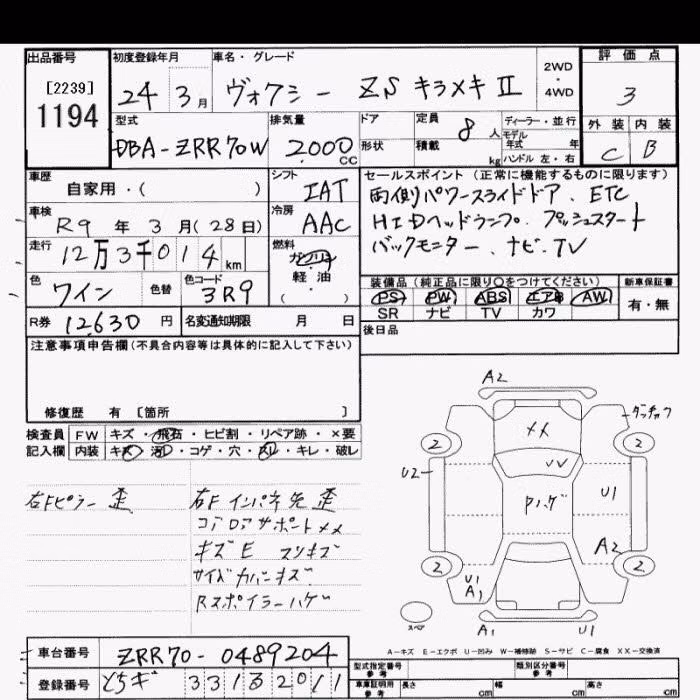 出品番号 初度登録年月 車名・グレード 2WD・4WD 評価点
[2239]
1194
24年 3月 ヴォクシー ZS キラメキⅡ 3
型式 排気量 ドア 定員 ディーラー・並行 外装 内装
DBA-ZRR70W 2000 CC 形状 積載 8人 kg モデル年式 年 ハンドル 左・右 C B
車歴 自家用・( ) シフト IAT
セールスポイント(正常に機能するものに限ります)
両側パワースライドドア、ETC
HIDヘッドランプ、プッシュスタート
バックモニター、ナビ、TV
車検 R9年 3月(28日) 冷房 AAC
走行 12万3千014km 燃料 ガソリン・軽油・( )
色 ワイン 色替 色コード 3R9
装備品(純正品に限り○をつけてください) 新車保証書
PS PW ABS エアB AW 有・無
SR ナビ TV カワ
R券 12,630円 名変通知期限 月 日 後日品
注意事項申告欄(不具合内容等は具体的に記入して下さい)
修復歴 有 〔箇所 〕
検査員記入欄 FW キズ・飛石・ヒビ割・リペア跡・×要
内装 キズ・汚れ・コゲ・穴・スレ・キレ・破レ
右Fピラー 歪
右Fインパネ先 歪
コアロアサポート××
キズE スリキズ
サイドカバーキズ
Rスポイラーハゲ
A2
××
VV
Pハゲ
U2
U1
A2
U1
A1
2
2
2
2
スペア
A1
U1
A-キズ E-エクボ U-凹み W-補修跡 S-サビ C-腐食 XX-交換済
車台番号 ZRR70-0489204
登録番号 とちぎ 331 む 2011
型式指定番号 参考 類別区分番号 参考
車庫証明用 参考 長さ cm 幅 cm 高さ cm